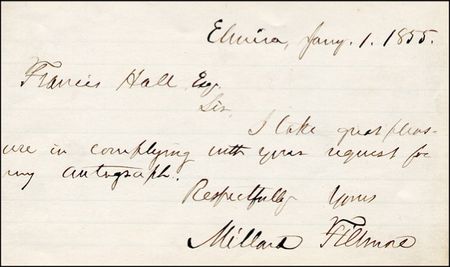 Elmira, Jany. 1. 1855.
Francis Hall Esq.
Sir
I take great pleas-
ure in complying with your request for
my autograph.
Respectfully yours
Millard Fillmore